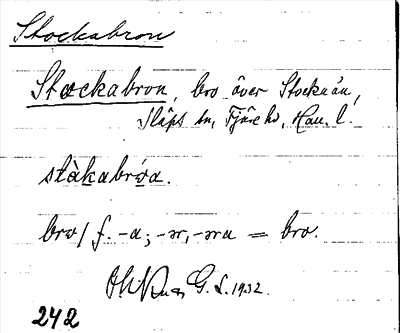 Stockabron
Stockabron, bro över Stockaån,
Släps sn, Fjäre hd, Hall. l.
stàkabrǿa.
brø / f. -a; -ər, -əra = bro.
G. L. 1932.
242